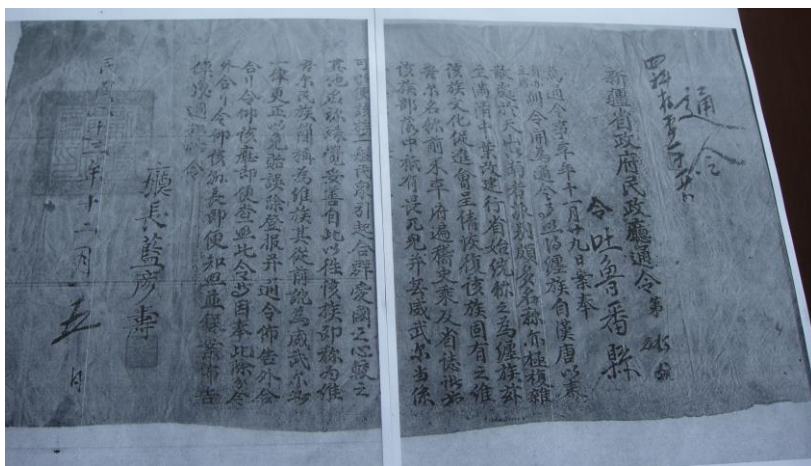 通令
新疆省政府民政廳通令第 號
令吐魯番縣
為通令事本年十一月廿九日案奉
訓令開為通令事照得纏族自漢唐以來
散處於天山南者族別頗多名称亦極複雜
至滿清中葉改建行省始統称之為纏族茲
該族文化促進會呈請恢復該族固有之維
吾尔名称前來本府遍稽史乘及省誌
該族部落中祇有畏兀兒并無威武尔當係
可以使該族一般民衆引起合群愛國之心較之
其他名称殊覺妥善自此以往該族即称為維
吾尔民族簡稱為維族其從前訛為威武尔
一律更正以免貽誤除登報并通令佈告外合
合行令仰該廳即便查照此令等因奉此除分令
外合行令仰該縣長即便知照並錄案佈告
俾 週知此令
廳長藍彥壽
民國二十三年十二月五日